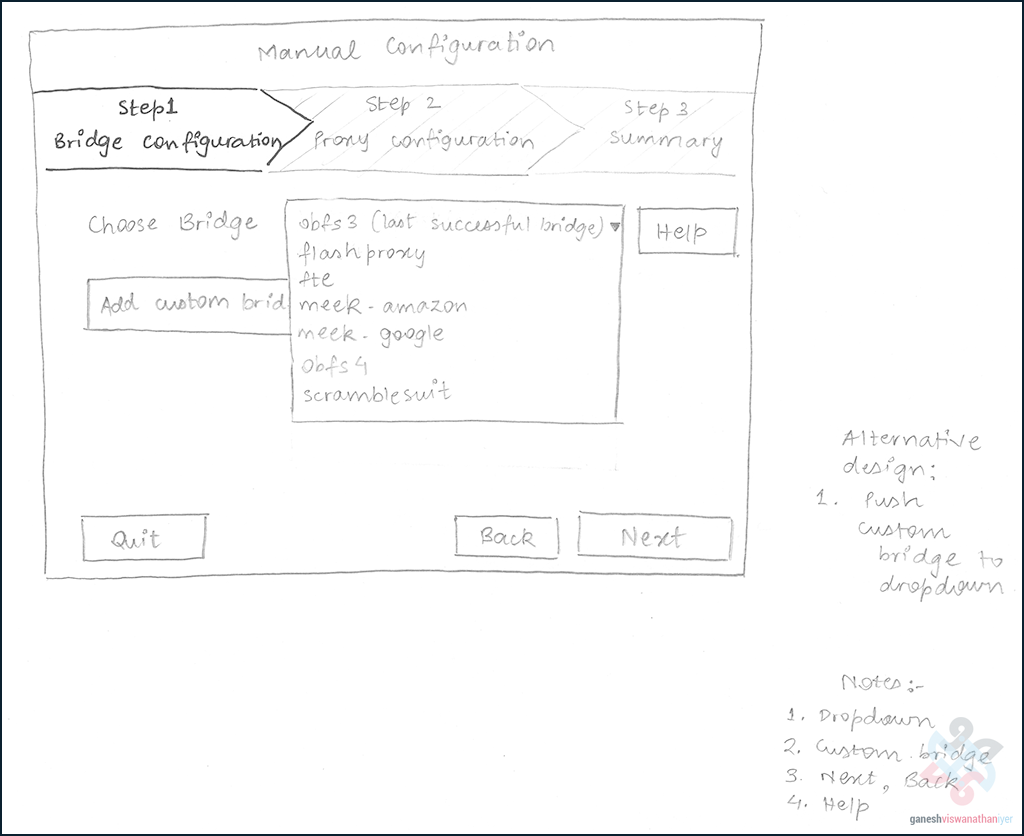 Manual Configuration
Step1
Bridge Configuration
Step 2
Proxy configuration
Step 3
Summary
Choose Bridge
obfs3 (last successful bridge) ▾
Help
flashproxy
fte
Add custom brid
meek-amazon
meek-google
obfs4
scramblesuit
Quit
Back
Next
Alternative
design:
1. Push
custom
bridge to
dropdown
Notes:-
1. Dropdown
2. Custom bridge
3. Next, Back
4. Help
ganeshviswanathaniyer